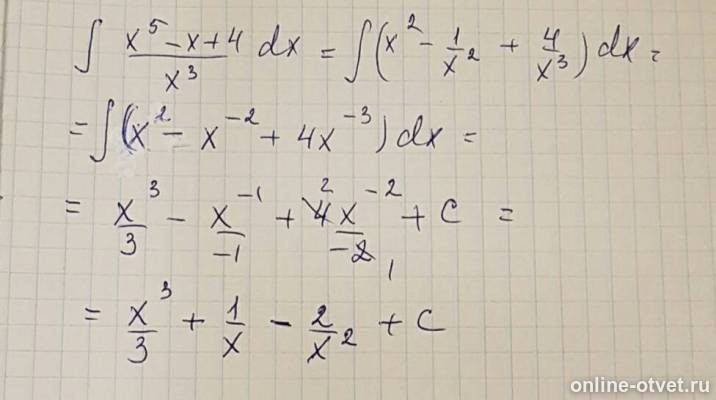 ∫ (x⁵ - x + 4)/x³ dx = ∫(x² - 1/x² + 4/x³) dx =
= ∫(x² - x⁻² + 4x⁻³) dx =
= x³/3 - x⁻¹/-1 + 4x⁻²/-2 + C =
= x³/3 + 1/x - 2/x² + C
online-otvet.ru